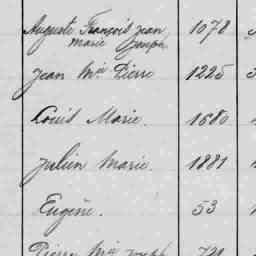 Auguste François Jean 1078
Marie Joseph
Jean Mie Pierre 1225
Louis Marie. 1680
Julien Marie. 1881
Eugène. 53
Pierre Mie Joseph 721